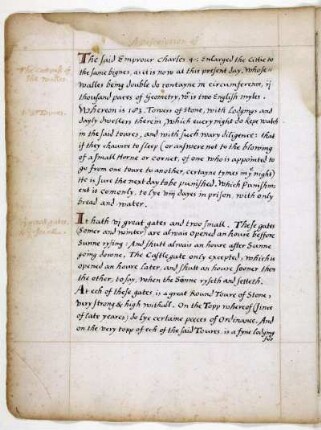 The said Emprour Charles 4: Enlarged the Citie to
the same bignes, as it is now at this present day, Whose
walles being double do contayne in circumference, ij
thousand paces of Geometry, viz two English myles.
Whereon is 183. Towers of Stone, with Lodgings and
dayly dwellers therein, Which every night do kepe watch
in the said towres, and with such wary diligence: that
if they chaunce to sleep (or answere not to the blowing
of a small Horne or cornet, of one who is appointed to
go from one toure to another, certayne tymes in ye night)
He is sure the next day to be punished. Which Punishm-
ent is comonly, to lye iiij dayes in prison, with only
bread and water.
It hath vj great gates and two small. These gates
(somer and winter) are alwais opened an houre beffore
Sunne rysing: And shutt alwais an houre after Sunne
going downe. The Castlegate only excepted, which is
opened an houre later, and shutt an houre sooner then
the other, to say, when the Sunne ryseth and setteth.
At ech of these gates is a great Round Toure of Stone,
very strong & high withall. On the Topp whereof (sines
of late yeares) do lye certaine peeces of Ordinance. And
on the very topp of ech of the said Toures is a fyne lodging